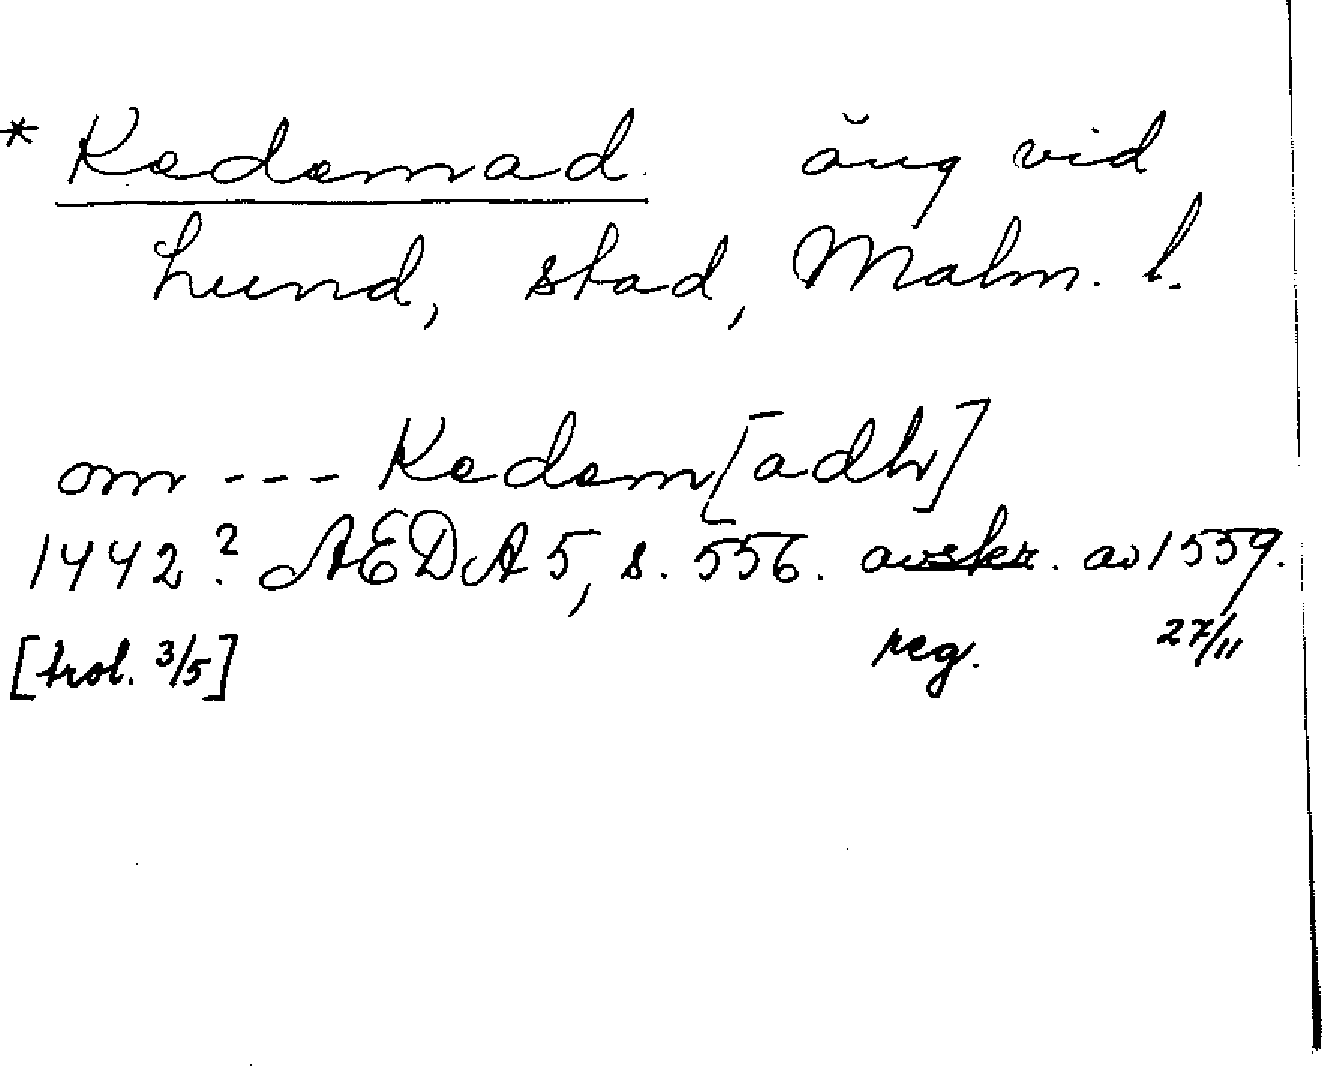 * Kedemad. äng vid
Lund, stad, Malm. l.
om --- Kedem[adh]
1442? AEDA 5, s. 556. avskr. av 1559.
[trol. 3/5] reg. 27/11